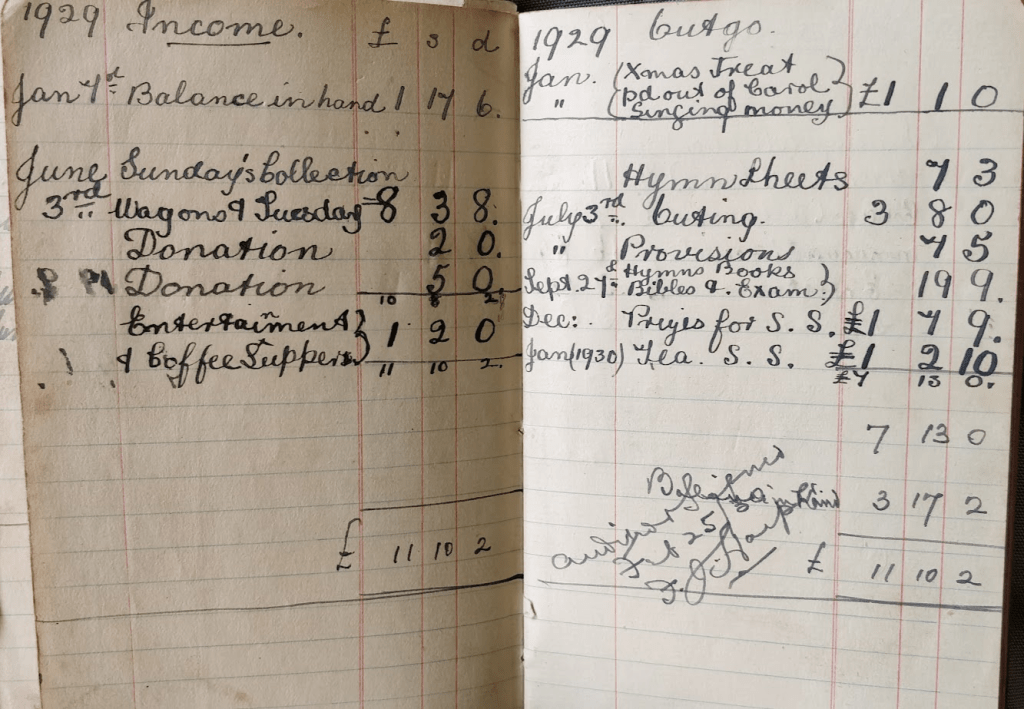 1929 Income. £ s d
Jan 7th Balance in hand 1 17 6.
June Sunday's Collection
3rd " Wagons & Tuesday = 8 3 8.
Donation 2 0.
Donation 5 0.
10 8 2.
Entertaiment }
& Coffee Suppers } 1 2 0
11 10 2.
£ 11 10 2
1929 Outgo.
Jan. (Xmas Treat }
" (pd out of Carol } £1 1 0
(Singing money }
Hymn Sheets 7 3
July 3rd Outing. 3 8 0
" Provisions 7 5
Sept. 27th Hymns Books }
Bibles &. Exam: } 19 9.
Dec: Prizes for S. S. £1 7 9.
Jan (1930) Tea. S. S. £1 2 10
£7 13 0.
7 13 0
Balance in hand 3 17 2
Audited & signed
Feb 25 30
£ 11 10 2